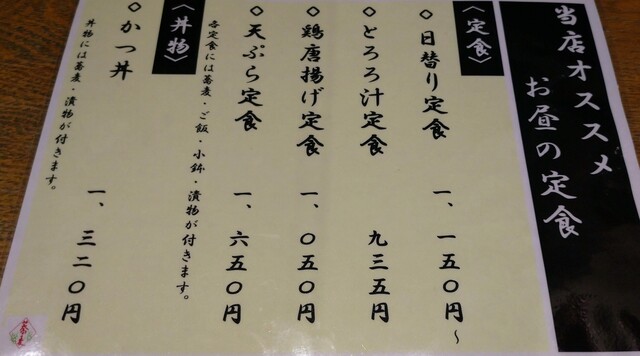 当店オススメ
お昼の定食
〈定食〉
◇日替り定食 一、一五〇円~
◇とろろ汁定食 九三五円
◇鶏唐揚げ定食 一、〇五〇円
◇天ぷら定食 一、六五〇円
各定食には蕎麦・ご飯・小鉢・漬物が付きます。
〈丼物〉
◇かつ丼 一、三二〇円
丼物には蕎麦・漬物が付きます。